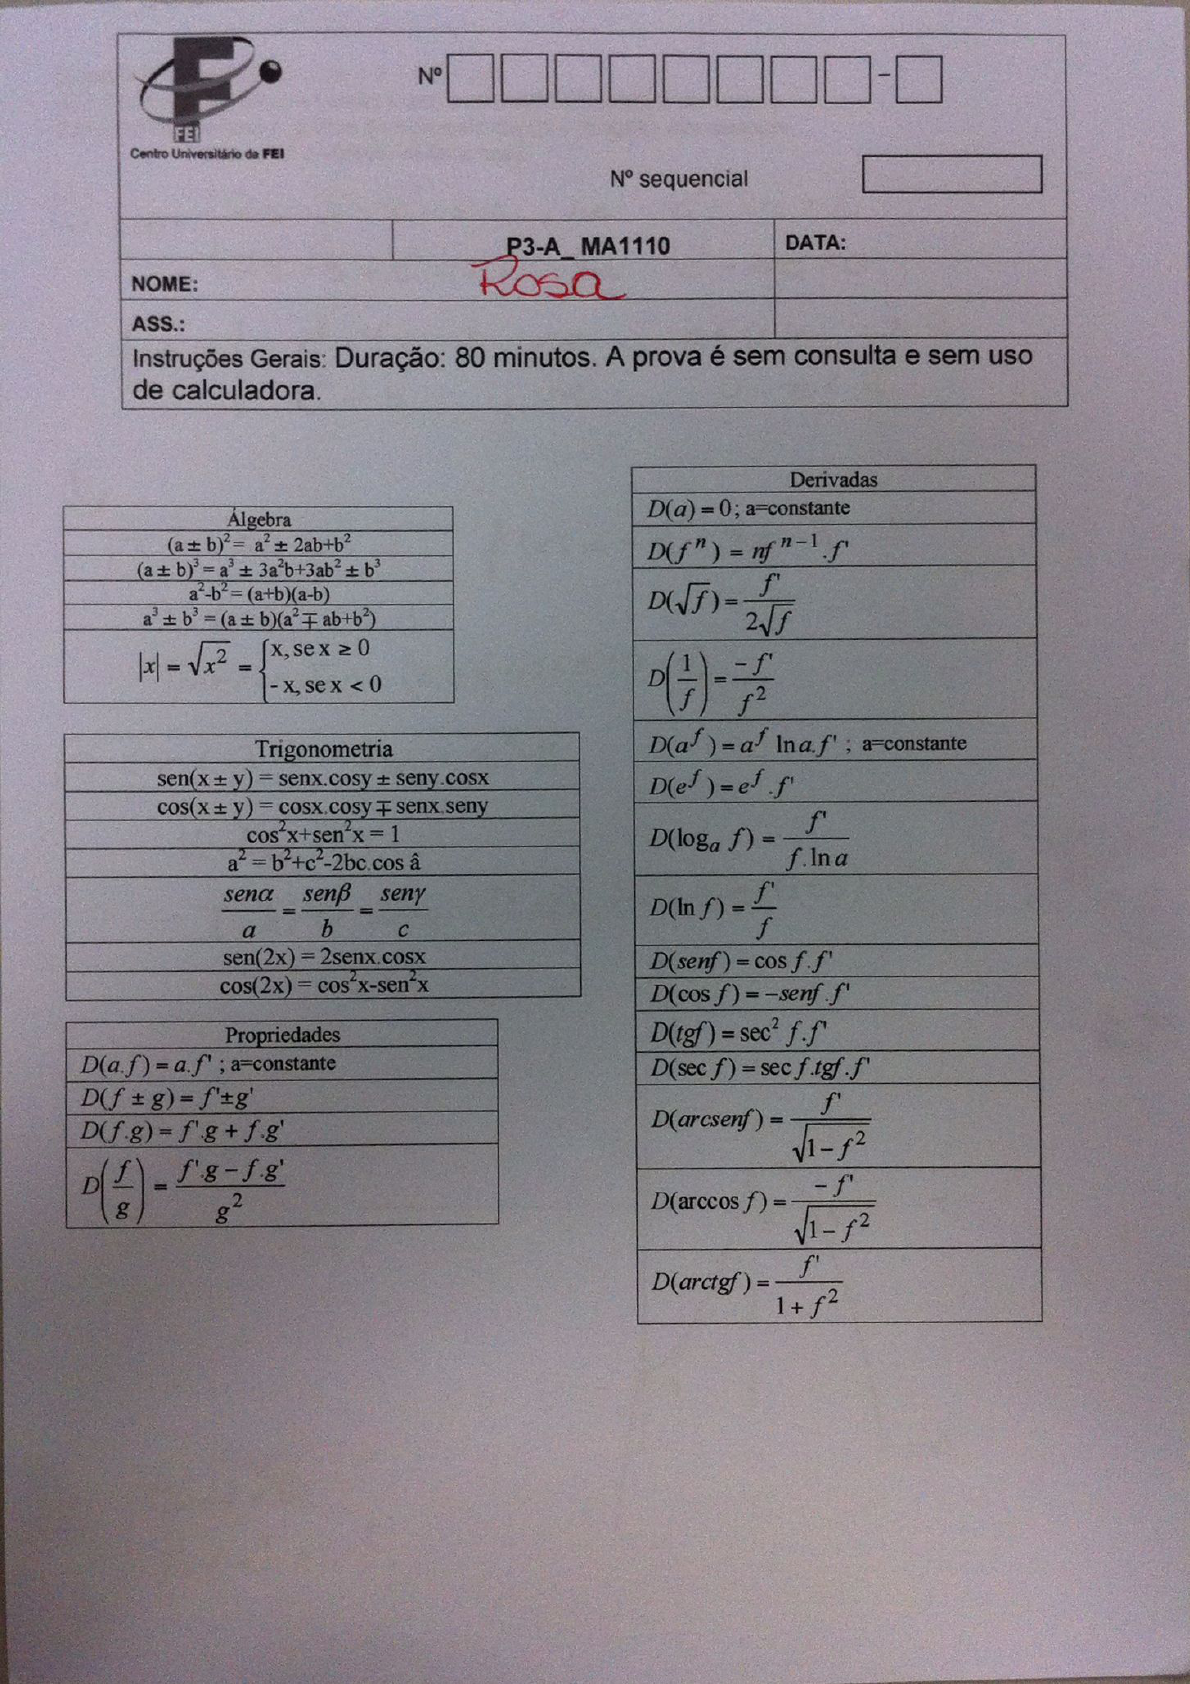 Nº – 
FEI
Centro Universitário da FEI
Nº sequencial
P3-A_ MA1110
DATA:
NOME: Rosa
ASS.:
Instruções Gerais: Duração: 80 minutos. A prova é sem consulta e sem uso
de calculadora.
Álgebra
(a ± b)² = a² ± 2ab+b²
(a ± b)³ = a³ ± 3a²b+3ab² ± b³
a²-b² = (a+b)(a-b)
a³ ± b³ = (a ± b)(a² ∓ ab+b²)
|x| = √x² = {x, se x ≥ 0
- x, se x < 0
Trigonometria
sen(x ± y) = senx.cosy ± seny.cosx
cos(x ± y) = cosx.cosy ∓ senx.seny
cos²x+sen²x = 1
a² = b²+c²-2bc.cos â
senα/a = senβ/b = senγ/c
sen(2x) = 2senx.cosx
cos(2x) = cos²x-sen²x
Propriedades
D(a.f) = a.f' ; a=constante
D(f ± g) = f'±g'
D(f.g) = f'.g + f.g'
D(f/g) = (f'.g − f.g')/g²
Derivadas
D(a) = 0 ; a=constante
D(fⁿ) = nfⁿ⁻¹.f'
D(√f) = f'/2√f
D(1/f) = −f'/f²
D(a^f) = a^f ln a.f' ; a=constante
D(e^f) = e^f.f'
D(logₐ f) = f'/f.ln a
D(ln f) = f'/f
D(senf) = cos f.f'
D(cos f) = −senf.f'
D(tgf) = sec² f.f'
D(sec f) = sec f.tgf.f'
D(arcsenf) = f'/√(1− f²)
D(arccos f) = − f'/√(1− f²)
D(arctgf) = f'/(1 + f²)